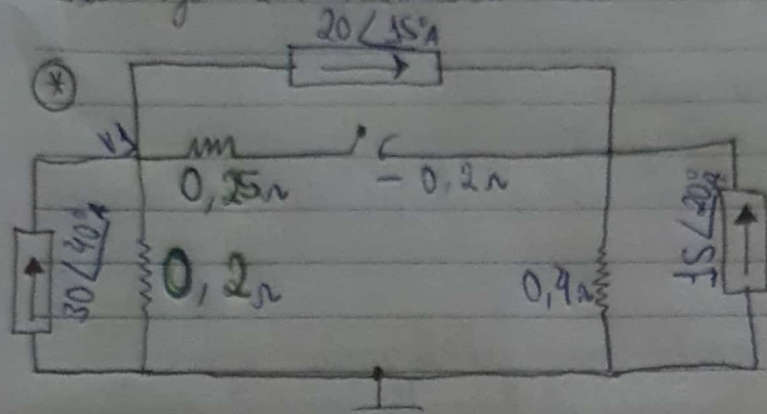 20∠15°A
*
V1
0,25Ω
-0,2Ω
30∠40°A
0,2Ω
0,4Ω
15∠20°A